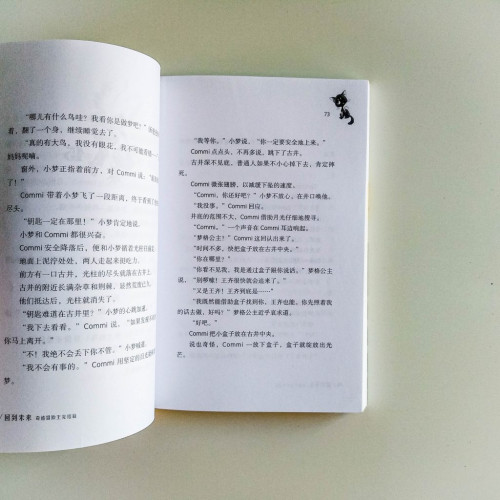 “哪儿有什么鸟哇？我看你是做梦吧？”
着，翻了一个身，继续睡觉去了。
“真的有大鸟，我没有眼花，我不可能看
妈妈唧嘀。
窗外，小梦正指着前方，对 Commi 说，
了！”
Commi 带着小梦飞了一段距离，终于
尽头。
“钥匙一定在那里！”小梦肯定地说。
小梦和 Commi 都很兴奋。
Commi 安全降落后，便和小梦循着光的
地面上泥泞处处，两人走起来很吃力。
前方有一口古井，光柱的尽头就落在古井
古井的附近长满杂草和荆棘，显然荒废已
他们抵达后，光柱就消失了。
“钥匙难道在古井里？”小梦的心跳加速。
“我下去看看。”Commi 说，“如果发
你马上离开。”
“不！我绝不会丢下你不管。”小梦喊道。
“我不会有事的。”Commi 用坚定的
梦。
/回到未来
73
“我等你。”小梦说，“你一定要安全地上来。”
Commi 点点头，不再多说，跳下了古井。
古井深不见底，普通人如果不小心掉下去，肯定摔
死。
Commi 微张翅膀，以减缓下坠的速度。
“Commi，你还好吧？”小梦不放心，在井口唤他。
“我没事。”Commi 回应。
井底的范围不大，Commi 借助月光仔细地搜寻。
“Commi。”一个声音在 Commi 耳边响起。
“梦格公主？”Commi 这回认出来了。
“时间不多，快把盒子放在古井中央。”
“你在哪里？”
“你看不见我，我是通过盒子跟你说话。”梦格公主
说，“别啰嗦！王齐回来了！”
“又是王齐！王齐到底是……”
“我既然能借助盒子找到你，王齐也能。你先照着我
的话去做，好吗？”梦格公主近乎哀求道。
“好吧。”
Commi 把小盒子放在古井中央。
说也奇怪，Commi 一放下盒子，盒子就绽放出光
芒。